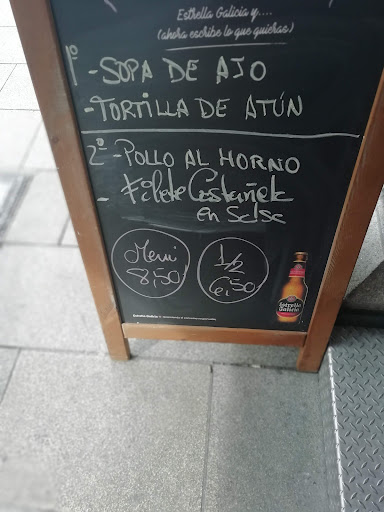 Estrella Galicia y....
(ahora escribe lo que quieras)
1º - SOPA DE AJO
- TORTILLA DE ATÚN
2º - POLLO AL HORNO
- Filete Castañek
en Salsa
Menu
8,50
1/2
6,50
Estrella
Galicia